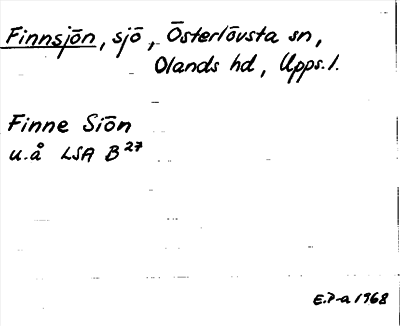 Finnsjön, sjö, Österlövsta sn,
Olands hd, Upps. l.
Finne Siön
u.å LSA B 27
E.P-a 1968